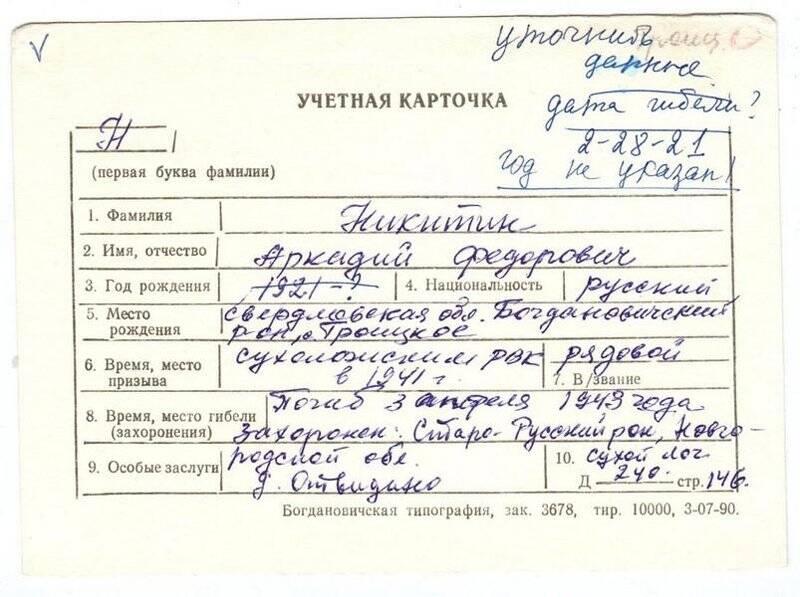 уточнить
данные
дата гибели?
2-28-21
год не указан!
УЧЕТНАЯ КАРТОЧКА
Н
(первая буква фамилии)
1. Фамилия Никитин
2. Имя, отчество Аркадий Федорович
3. Год рождения 1921-? 4. Национальность русский
5. Место рождения свердловская обл. Богдановичский
рон, с. Троицкое
6. Время, место призыва сухоложским РВК
в 1941 г.
рядовой
7. В/звание
8. Время, место гибели (захоронения) Погиб 3 апреля 1943 года
Захоронен: Старо-Русский рон, Новго-
родской обл.
9. Особые заслуги д. Отвидино
10. сухой лог
Д 240. стр. 146.
Богдановичская типография, зак. 3678, тир. 10000, 3-07-90.